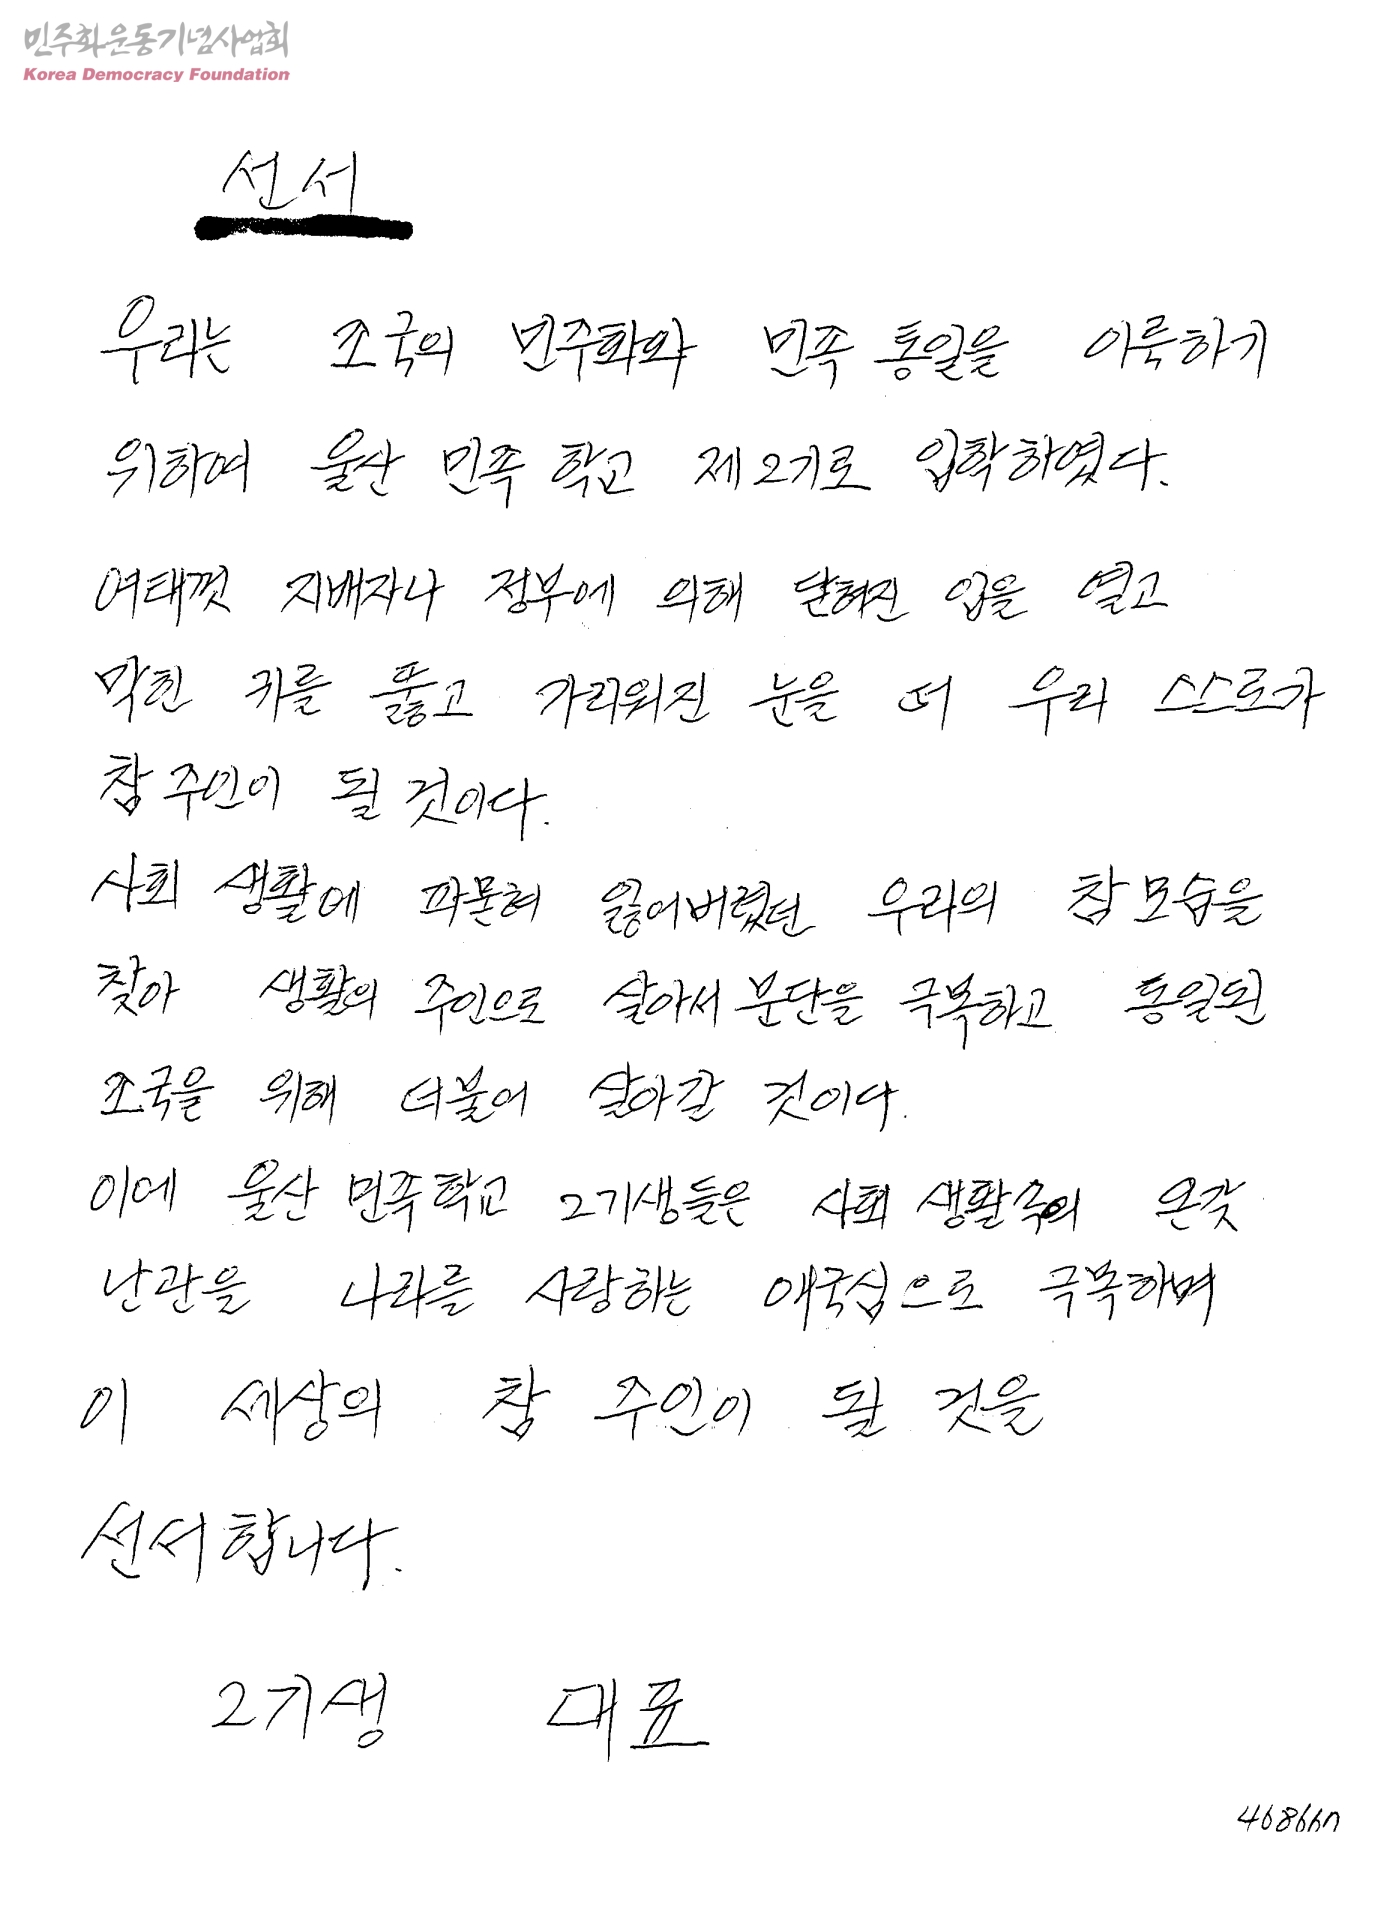 민주화운동기념사업회
Korea Democracy Foundation
선서
우리는 조국의 민주화와 민족 통일을 이룩하기
위하여 울산 민족 학교 제2기로 입학하였다.
여태껏 지배자나 정부에 의해 닫혀진 입을 열고
막힌 귀를 뚫고 가리워진 눈을 떠 우리 스스로가
참 주인이 될 것이다.
사회 생활에 파묻혀 잃어버렸던 우리의 참모습을
찾아 생활의 주인으로 살아서 분단을 극복하고 통일된
조국을 위해 더불어 살아갈 것이다.
이에 울산 민족학교 2기생들은 사회 생활속의 온갖
난관을 나라를 사랑하는 애국심으로 극복하며
이 세상의 참 주인이 될 것을
선서합니다.
2기생 대표